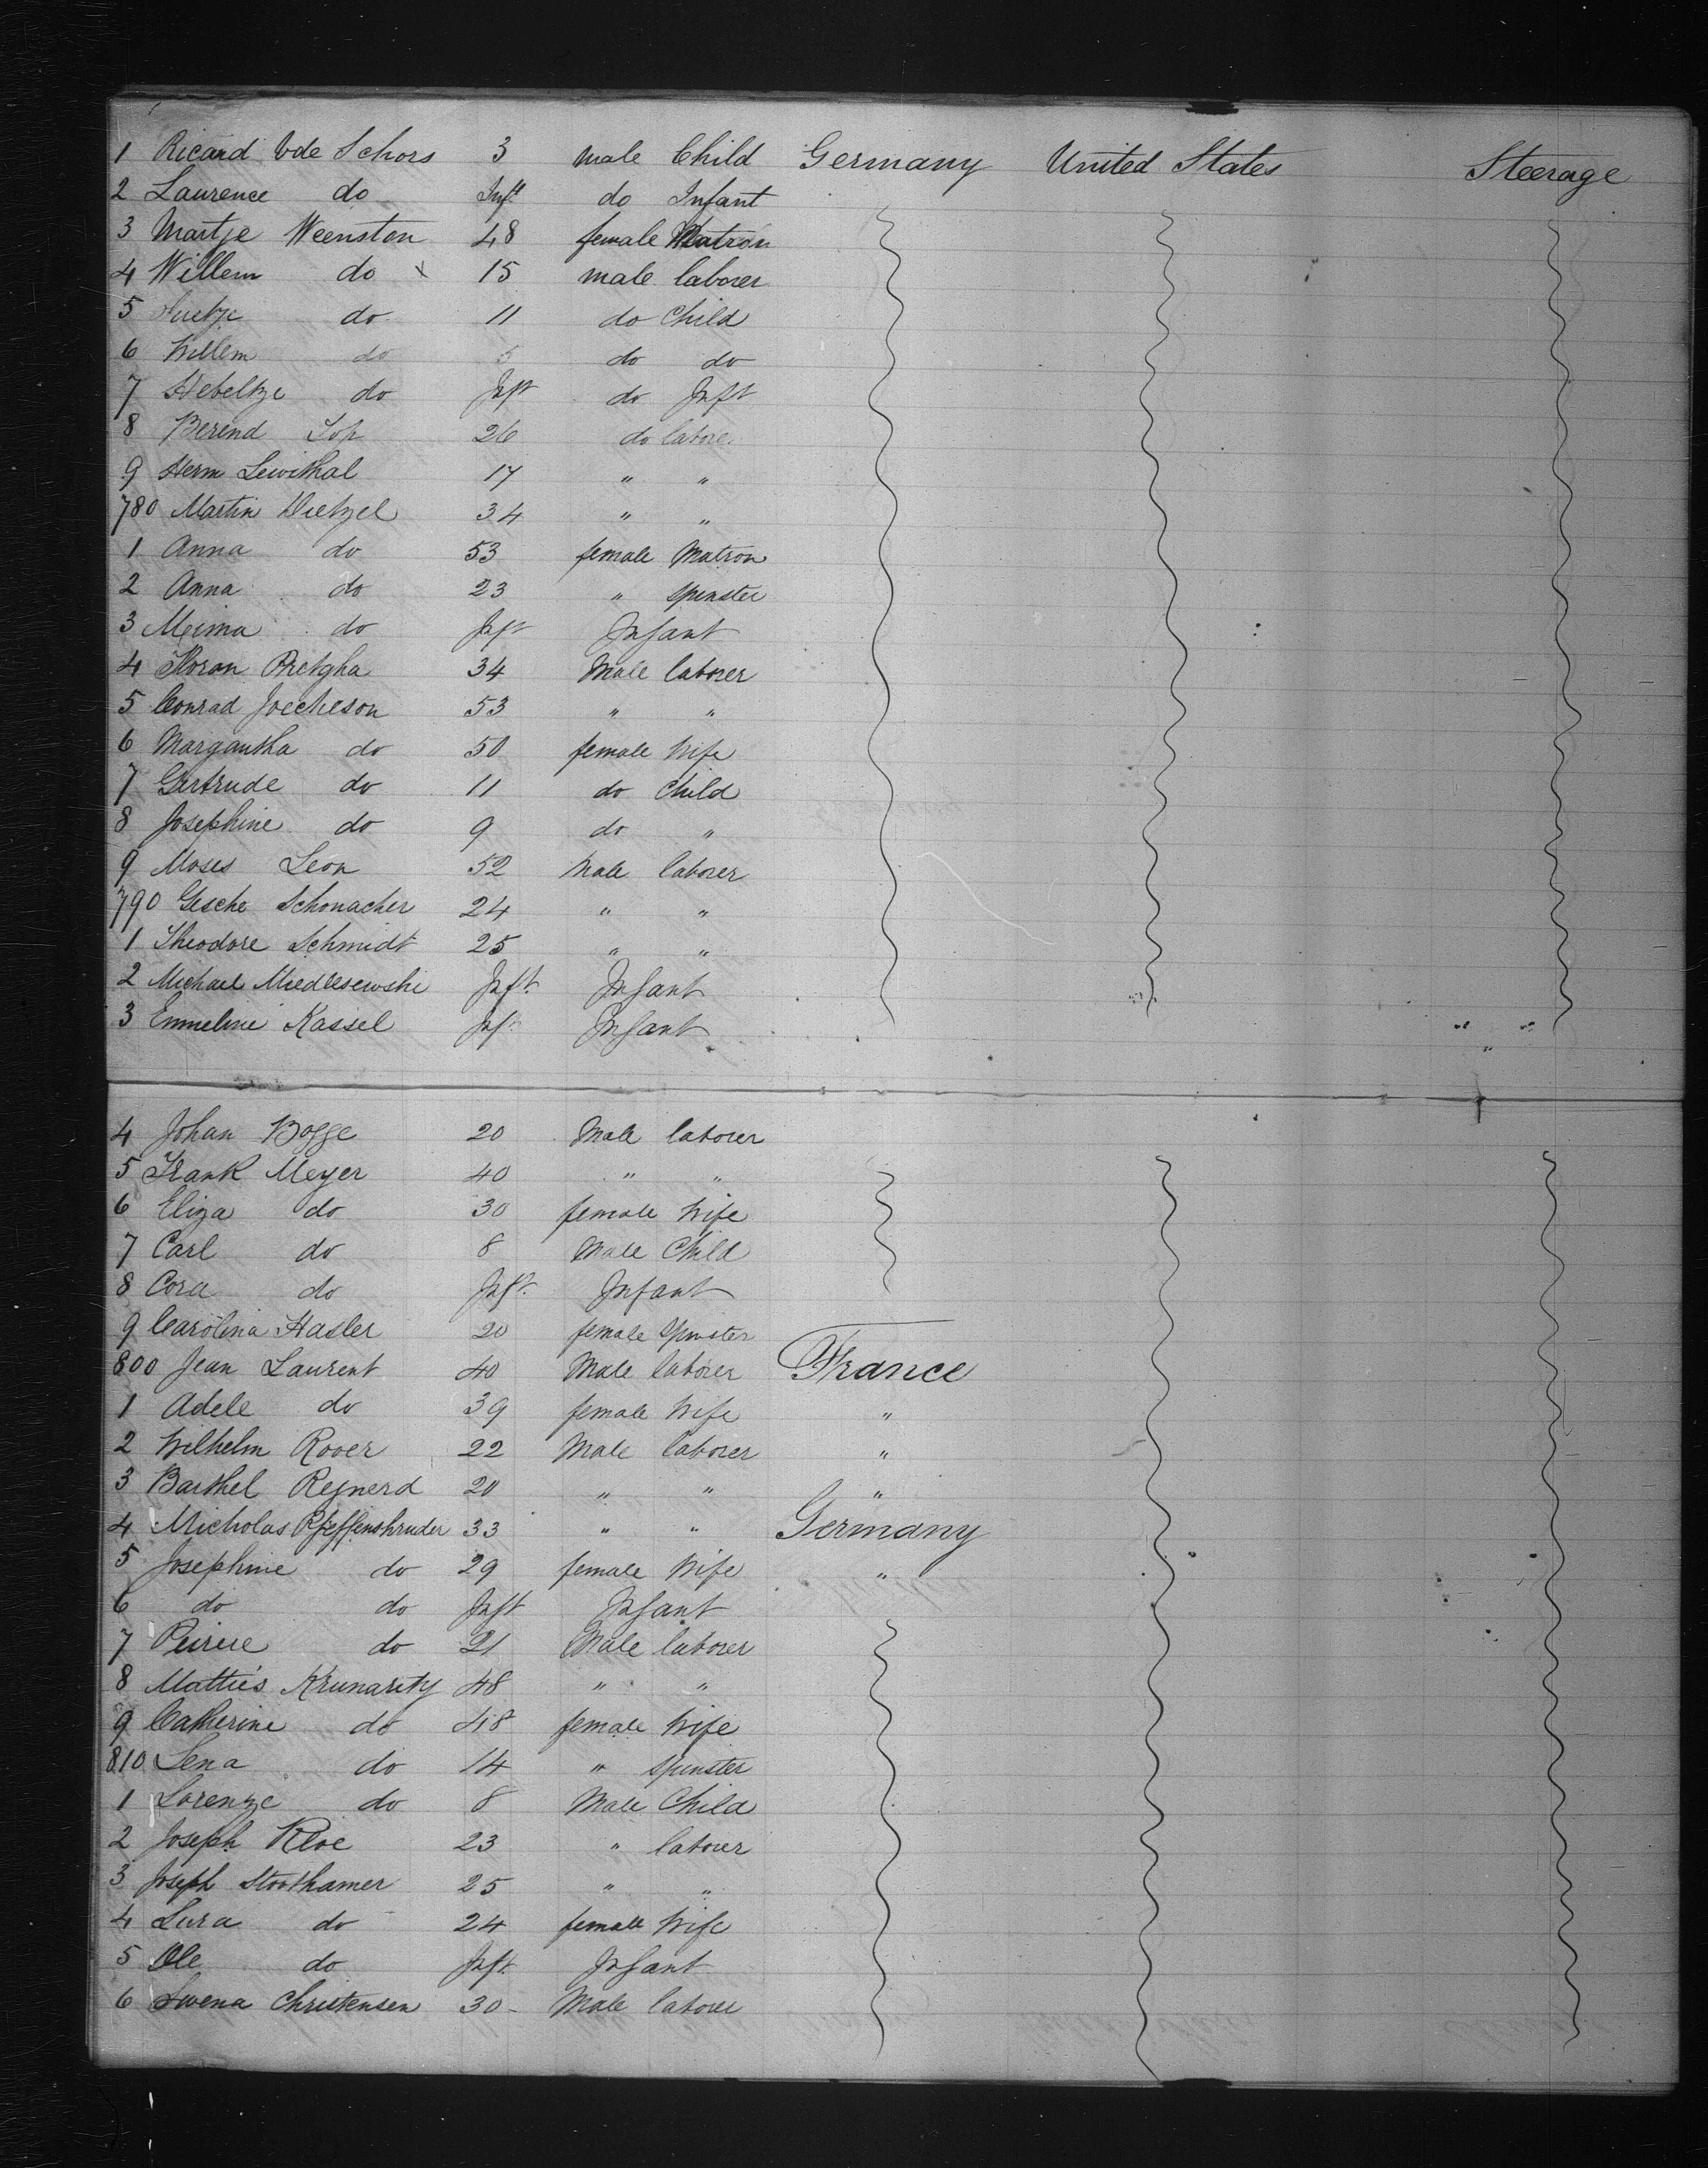 1 Ricard Vde Schors 3 male Child Germany United States Steerage
2 Laurence do Inft do Infant
3 Martje Weenstan 48 female Matron
4 Willem do x 15 male laborer
5 do 11 do Child
6 Willem do 5 do do
7 Hebeltze do Inft do Inft
8 Berend Top 26 do labore
9 Herm Lewithal 17 " "
780 Martin Dietzel 34 " "
1 Anna do 53 female Matron
2 Anna do 23 " spinster
3 Meima do Inft Infant
4 34 Male laborer
5 Conrad Joecheson 53 " "
6 Margantha do 50 female Wife
7 Gertrude do 11 do Child
8 Josephine do 9 do "
9 Moses Leon 52 Male laborer
790 Gesche Schonacher 24 " "
1 Theodore Schmidt 25 " "
2 Michael Miedlesewski Inft. Infant
3 Emmeline Kassel Inft Infant
4 Johan Bogge 20 Male laborer
5 Frank Meyer 40 " "
6 Eliza do 30 female Wife
7 Carl do 8 Male Child
8 Cora do Inft. Infant
9 Carolina Hasler 20 female spinster
800 Jean Laurent 40 Male laborer France
1 Adele do 39 female Wife "
2 Wilhelm Rover 22 Male laborer "
3 Barthel Reynerd 20 " " "
4 Nicholas Pfeffenshruder 33 " " Germany
5 Josephine do 29 female Wife "
6 do do Inft Infant
7 do 21 Male laborer
8 Matties Krunarity 48 " "
9 Catherine do 48 female Wife
810 Lena do 14 " spinster
1 Lorenze do 8 Male Child
2 Joseph Kloe 23 " laborer
3 Joseph Stoothamer 25 " "
4 Lura do 24 female Wife
5 Ole do Inft. Infant
6 Swena Christensen 30 - Male laborer